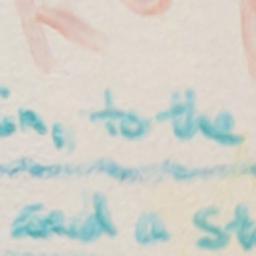 in, to the
and a St